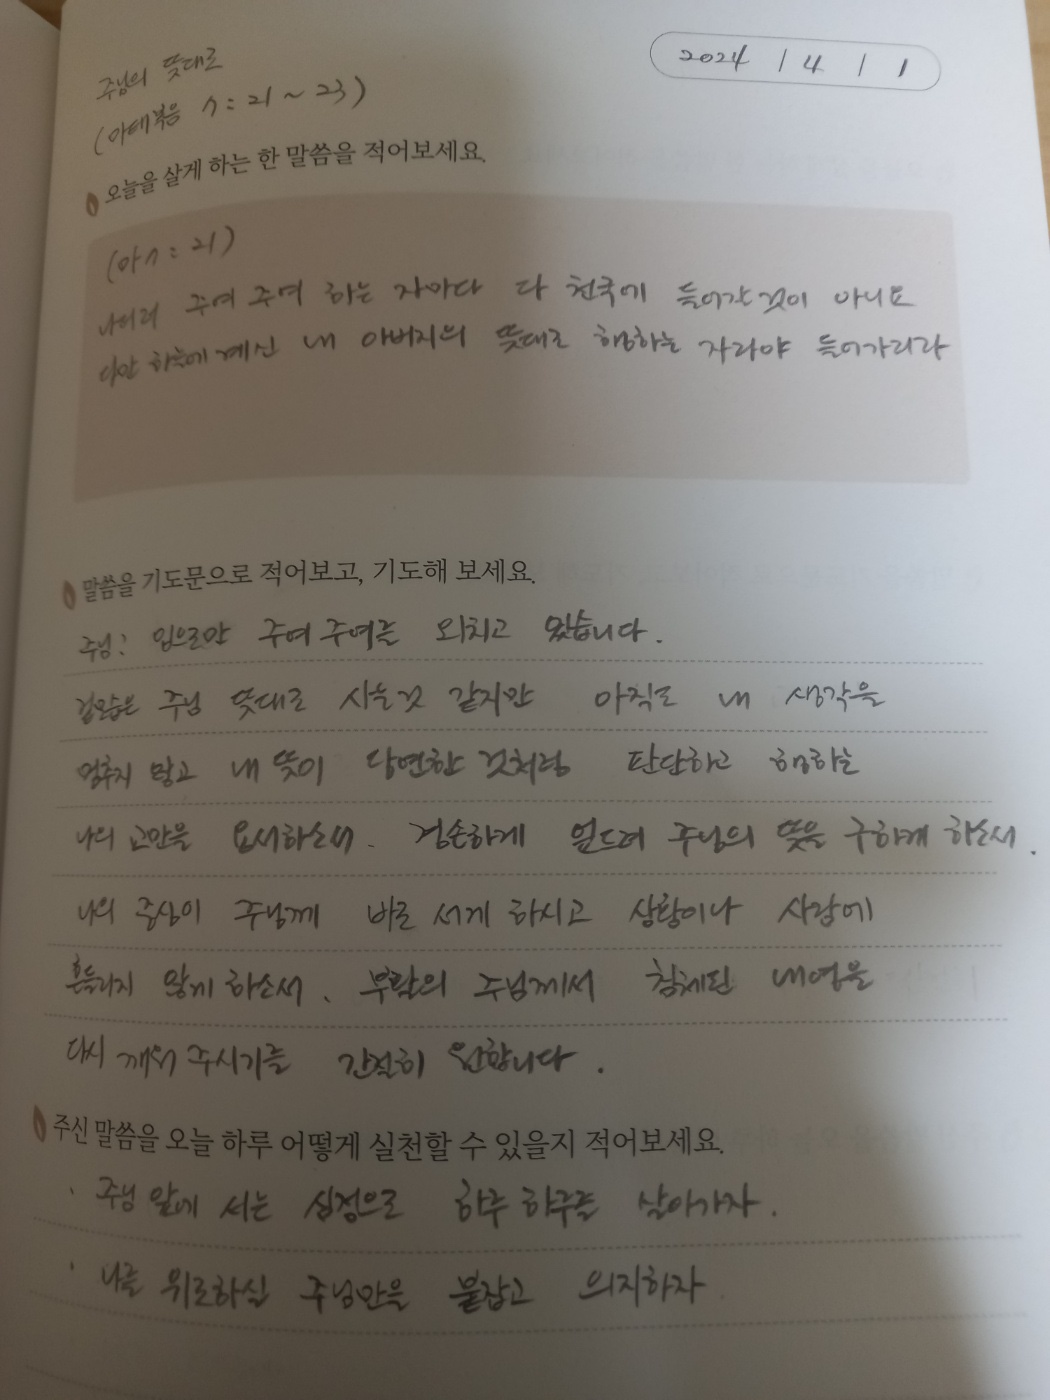 2024 / 4 / 1
주님의 뜻대로
(마태복음 7:21~23)
오늘을 살게 하는 한 말씀을 적어보세요.
(마7:21)
나더러 주여 주여 하는 자마다 다 천국에 들어갈것이 아니요
다만 하늘에 계신 내 아버지의 뜻대로 행하는 자라야 들어가리라
말씀을 기도문으로 적어보고, 기도해 보세요.
주님! 입으로만 주여 주여를 외치고 있습니다.
겉모습은 주님 뜻대로 사는것 같지만 아직도 내 생각을
멈추지 않고 내 뜻이 당연한 것처럼 판단하고 행하는
나의 교만을 용서하소서. 겸손하게 엎드려 주님의 뜻을 구하게 하소서.
나의 중심이 주님께 바로 서게 하시고 상황이나 사람에
흔들리지 않게 하소서. 부활의 주님께서 침체된 내영을
다시 깨워 주시기를 간절히 원합니다.
주신 말씀을 오늘 하루 어떻게 실천할 수 있을지 적어보세요.
· 주님 앞에 서는 심정으로 하루 하루를 살아가자.
· 나를 위로하실 주님만을 붙잡고 의지하자